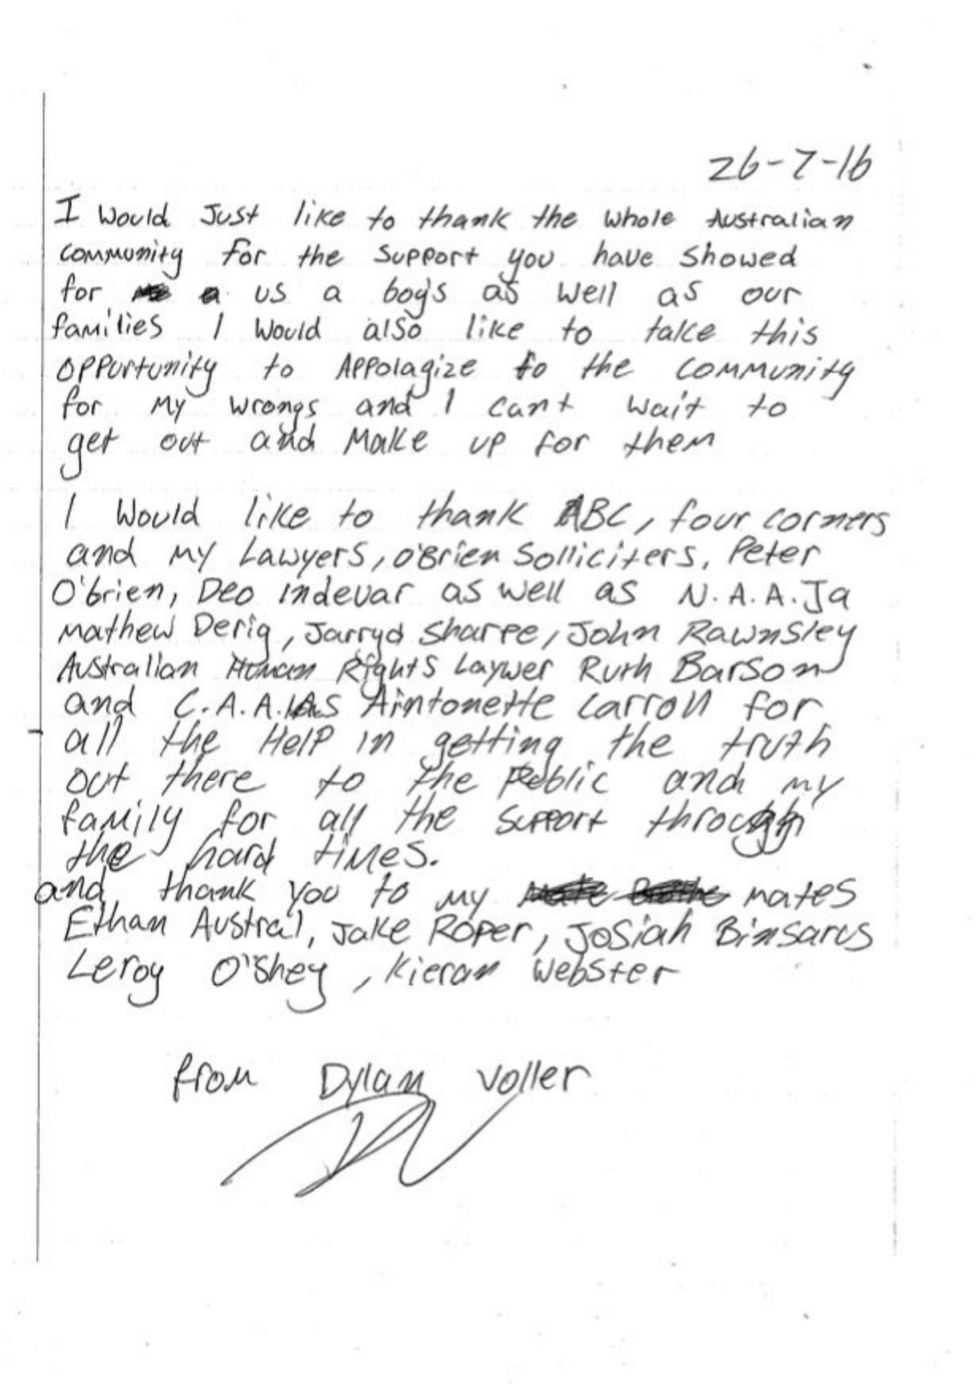 26-7-16
I Would Just like to thank the whole Australian
community for the support you have showed
for a us a boys as well as our
families I would also like to take this
opportunity to Appolagize to the community
for My wrongs and I cant wait to
get out and Make up for them
I would like to thank ABC, four corners
and my Lawyers, O'Brien Solliciters, Peter
O'brien, Deo indevar as well as N.A.A.Ja
Mathew Derig, Jarryd Sharpe, John Rawnsley
Australian Human Rights Laywer Ruth Barson
and C.A.A.LAS Aintonette Carroll for
all the Help in getting the truth
out there to the Public and my
family for all the support through
the hard times.
and thank you to my mates
Ethan Austral, Jake Roper, Josiah Binsarus
Leroy O'Shey, Kieran Webster
from Dylan Voller